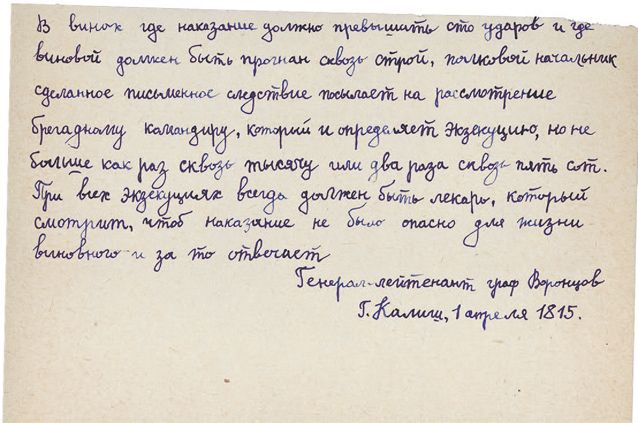 В винах где наказание должно превышить сто ударов и где
виновой должен быть прогнан сквозь строй, полковой начальник
сделанное письменное следствие посылает на рассмотрение
брегадному командиру, который и определяет экзекуцию, но не
больше как раз сквозь тысячу или два раза сквозь пять сот.
При всех экзекуциях всегда должен быть лекарь, который
смотрит, чтоб наказание не было опасно для жизни
виновного и за то отвечает
Генерал-лейтенант граф Воронцов
Г. Калиш, 1 апреля 1815.